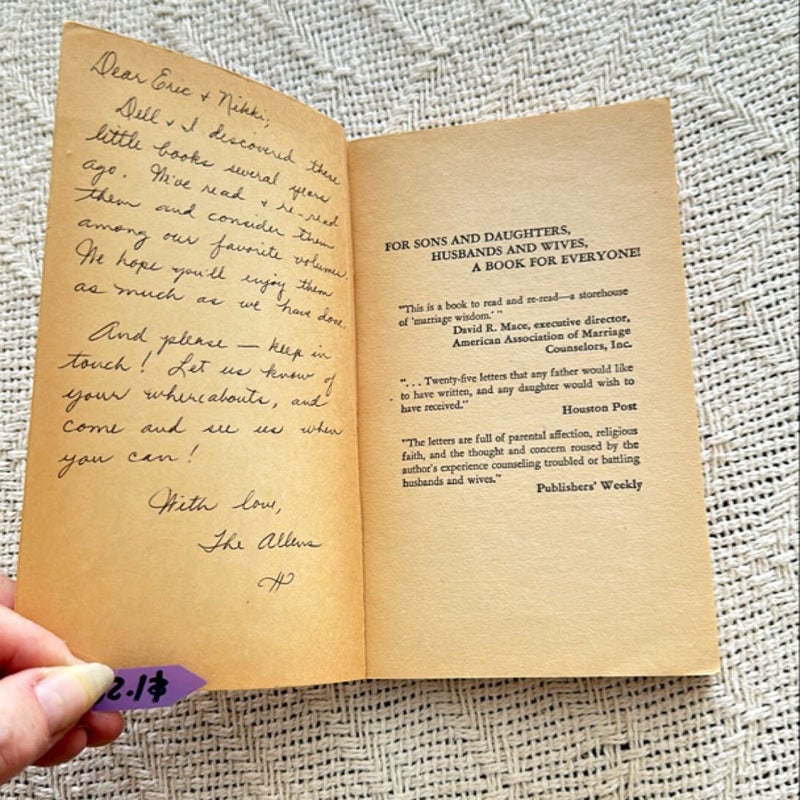 Dear Eric & Nikki,
Dell & I discovered these
little books several years
ago. We've read & re-read
them and consider them
among our favorite volumes.
We hope you'll enjoy them
as much as we have done.
And please — keep in
touch! Let us know of
your whereabouts, and
come and see us when
you can!
With love,
The Allens
FOR SONS AND DAUGHTERS,
HUSBANDS AND WIVES,
A BOOK FOR EVERYONE!
"This is a book to read and re-read—a storehouse
of 'marriage wisdom.' "
David R. Mace, executive director,
American Association of Marriage
Counselors, Inc.
". . . Twenty-five letters that any father would like
to have written, and any daughter would wish to
have received."
Houston Post
"The letters are full of parental affection, religious
faith, and the thought and concern roused by the
author's experience counseling troubled or battling
husbands and wives."
Publishers' Weekly